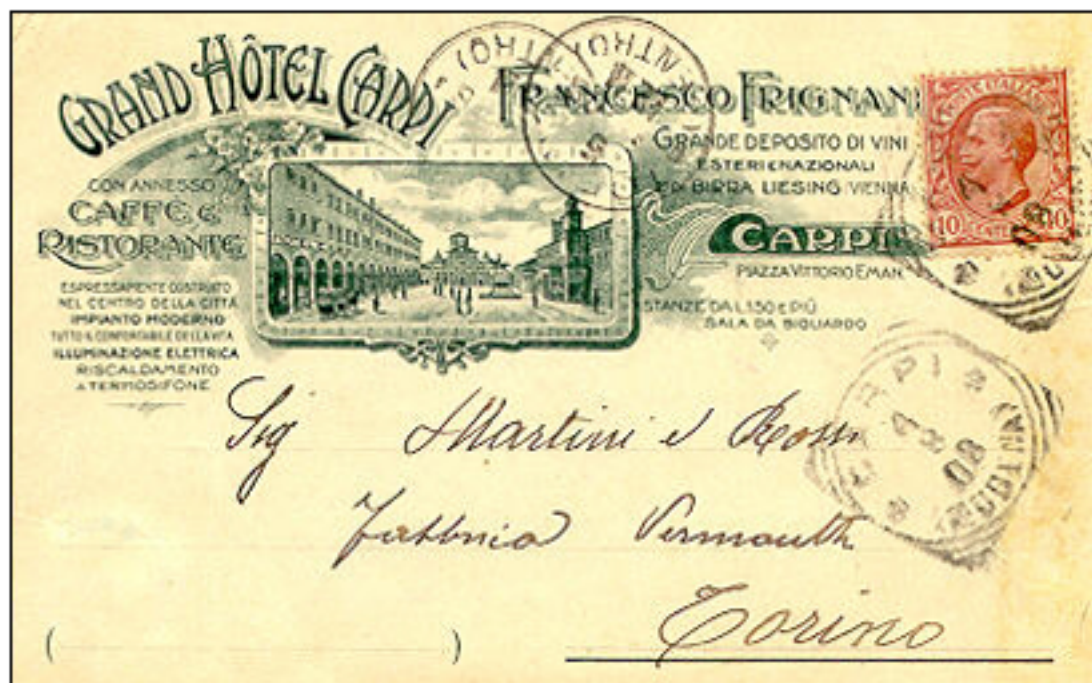 GRAND HÔTEL CARPI
CON ANNESSO
CAFFÈ E
RISTORANTE
ESPRESSAMENTE COSTRUITO
NEL CENTRO DELLA CITTÀ
IMPIANTO MODERNO
TUTTO IL CONFORTABILE DELLA VITA
ILLUMINAZIONE ELETTRICA
RISCALDAMENTO
A TERMOSIFONE
FRANCESCO FRIGNANI
GRANDE DEPOSITO DI VINI
ESTERI E NAZIONALI
E DI BIRRA LIESING (VIENNA
CARPI
PIAZZA VITTORIO EMAN.
STANZE DA L.1.50 E PIÙ
SALA DA BIGLIARDO
POSTE ITALIANE
10 CENT 10
CARPI
08
Sig Martini e Rossi
Fabbrica Vermouth
Torino
( )